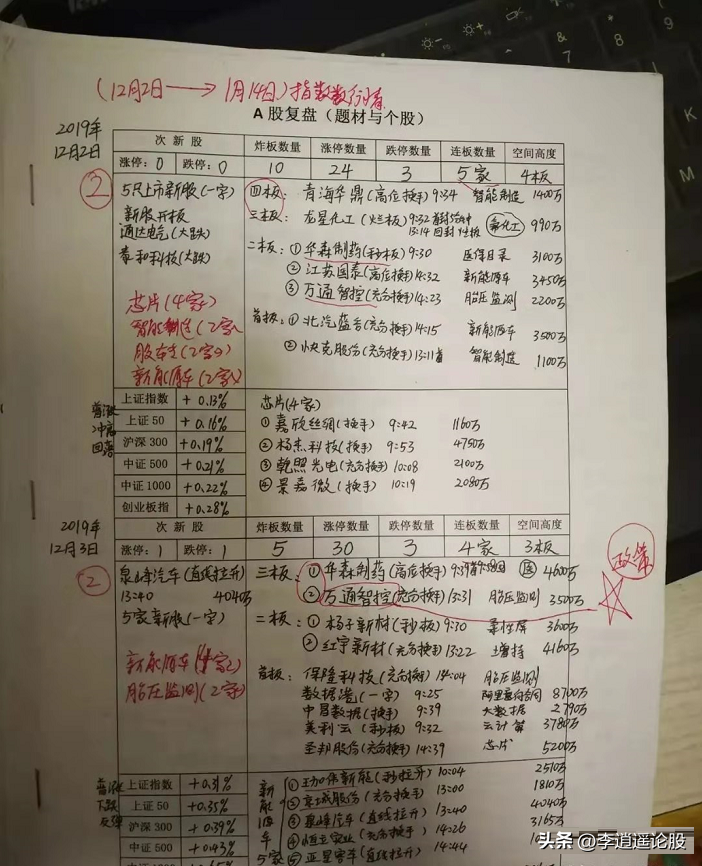 (12月2日→1月14日)指数数行情
A股复盘（题材与个股）
2019年
12月2日
次 新 股 炸板数量 涨停数量 跌停数量 连板数量 空间高度
涨停：0 跌停：0 10 24 3 5家 4板
②
5只上市新股(一字)
新股开板
通达电气(大跌)
泰和科技(大跌)
芯片(4家)
智能制造(2家)
胎压(2家)
新能源车(2家)
四板：青海华鼎(高位换手)9:34 智能制造 1400万
三板：龙星化工(烂板)9:32 13:14回封 氟化工 990万
二板：①华森制药(秒板)9:30 医保目录 3100万
②江苏国泰(高位换手)14:32 新能源车 3450万
③万通智控(充分换手)14:23 胎压监测 2200万
首板：①北汽蓝谷(充分换手)14:15 新能源车 3500万
②快克股份(充分换手)13:11 智能制造 1100万
普涨
冲高
回落
上证指数 +0.13%
上证50 +0.16%
沪深300 +0.19%
中证500 +0.21%
中证1000 +0.22%
创业板指 +0.28%
芯片(4家)
①嘉欣丝绸(换手) 9:42 1160万
②杨杰科技(换手) 9:53 4750万
③乾照光电(充分换手) 10:08 2100万
④景嘉微(换手) 10:19 2080万
2019年
12月3日
次 新 股 炸板数量 涨停数量 跌停数量 连板数量 空间高度
涨停：1 跌停：1 5 30 3 4家 3板
②
泉峰汽车(直线拉升)
13:40 4040万
5家新股(一字)
新能源车(家)
胎压监测(2家)
三板：①华森制药(高位换手) 医 4600万
②万通智控(充分换手)13:31 胎压监测 3500万
政策
二板：①杨子新材(秒板)9:30 柔性屏 3600万
②红宇新材(充分换手)13:22 增持 4160万
首板：保隆科技(充分换手)14:04 胎压监测
数据港(一字) 9:25 阿里合同 8700万
中昌数据(换手) 9:39 大数据 2790万
美利云(秒板) 9:32 云计算 3780万
圣邦股份(充分换手)14:39 芯片 5200万
普涨
下跌
反弹
上证指数 +0.31%
上证50 +0.35%
沪深300 +0.39%
中证500 +0.43%
新能源车
5家
①新能(秒拉升)10:04 2510万
②京城股份(充分换手) 13:00 1810万
③泉峰汽车(直线拉升) 13:40 4040万
④恒立实业(充分换手) 14:26 3165万
⑤亚星客车(直线拉升) 14:44
头条 @李逍遥论股